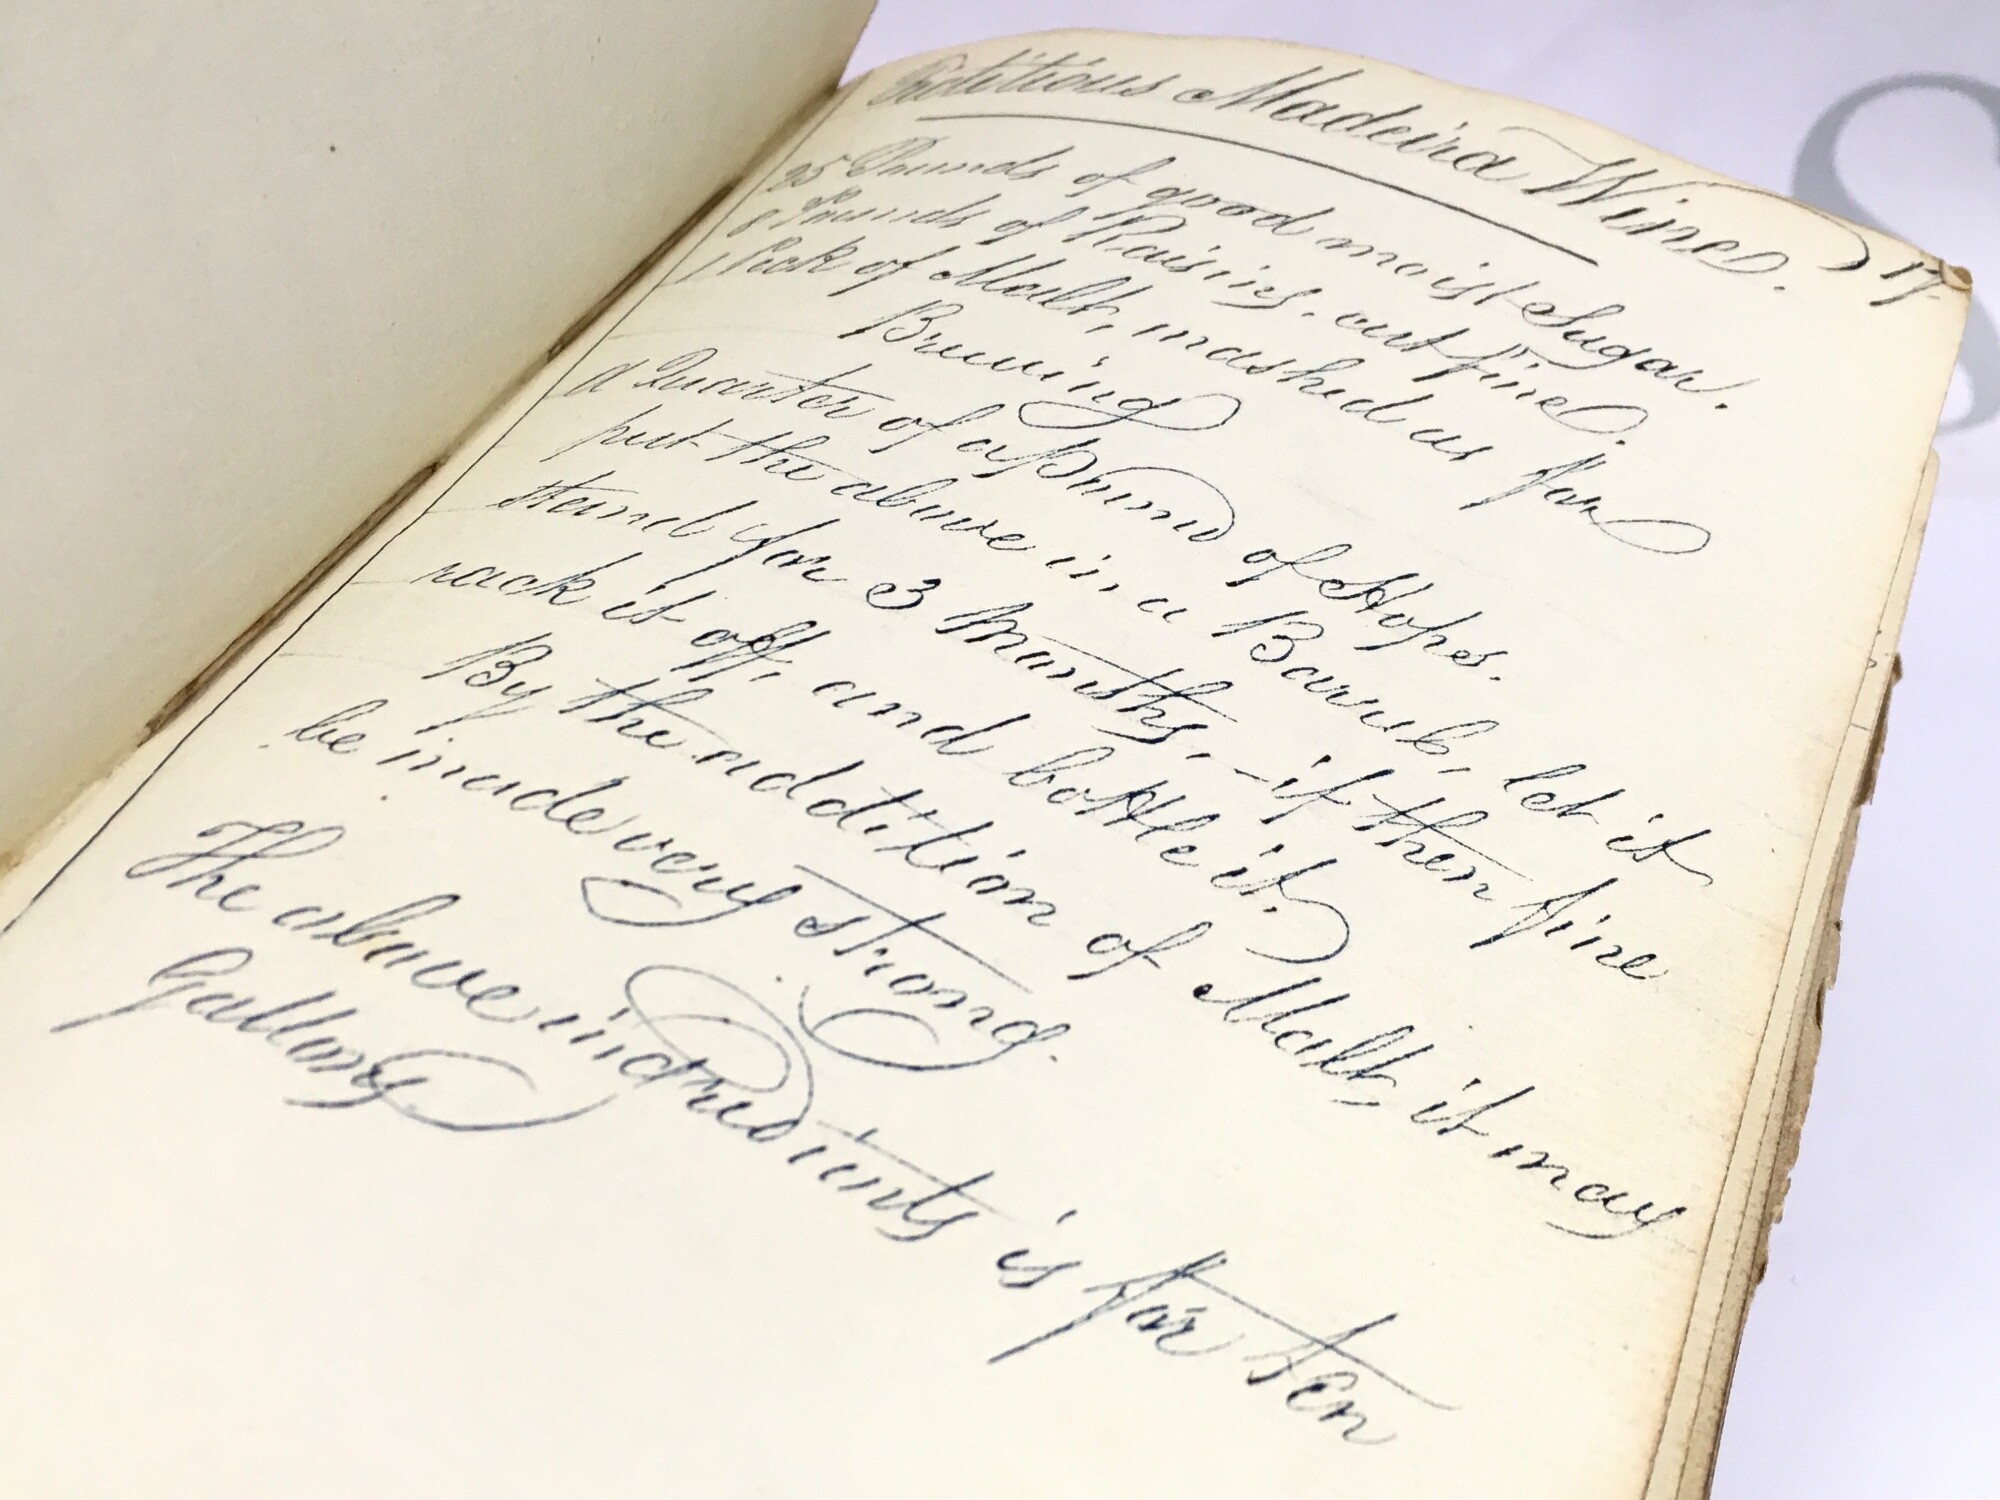 Fictitious Madeira Wine. 17.
25 Pounds of good moist Sugar.
8 Pounds of Raisins, cut fine.
1 Peck of Malt, mashed as for
Brewing
a Quarter of a Pound of Hops.
put the above in a Barrel, let it
stand for 3 Months, - if then fine
rack it off, and bottle it.
By the addition of Malt, it may
be made very strong.
The above ingredients is for ten
Gallons